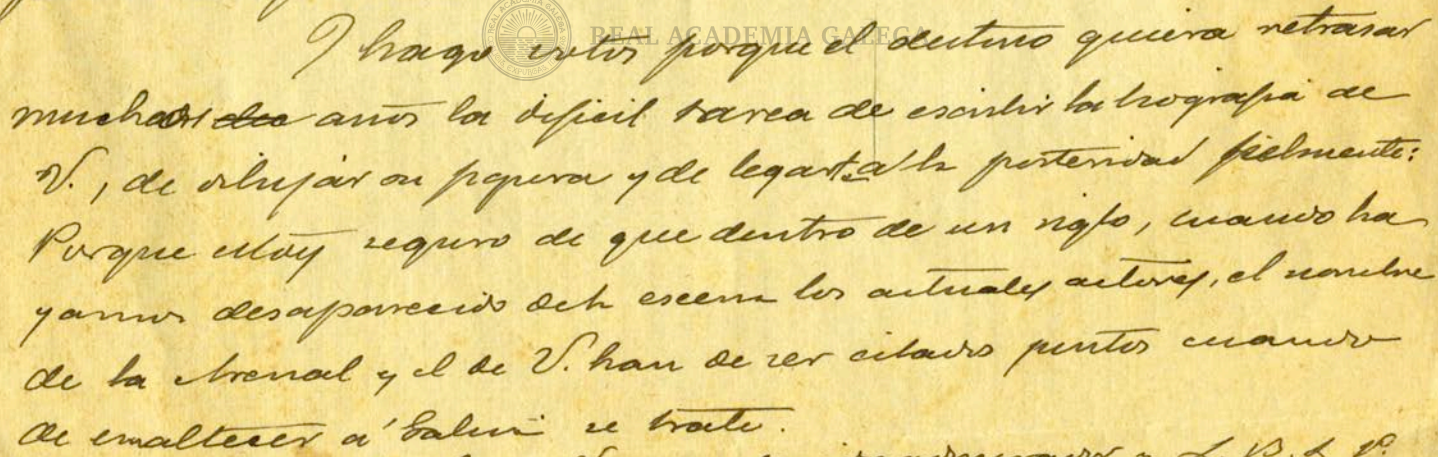 REAL ACADEMIA GALEGA
Y hago votos porque el destino quiera retrasar
muchos años la dificil tarea de escribir la biografia de
V., de dibujar su figura y de legarla á la posteridad fielmente:
Porque estoy seguro de que dentro de un siglo, cuando ha
yamos desaparecido de la escena los actuales actores, el nombre
de la Arenal y el de V. han de ser citados juntos cuando
de enaltecer á Galicia se trate.